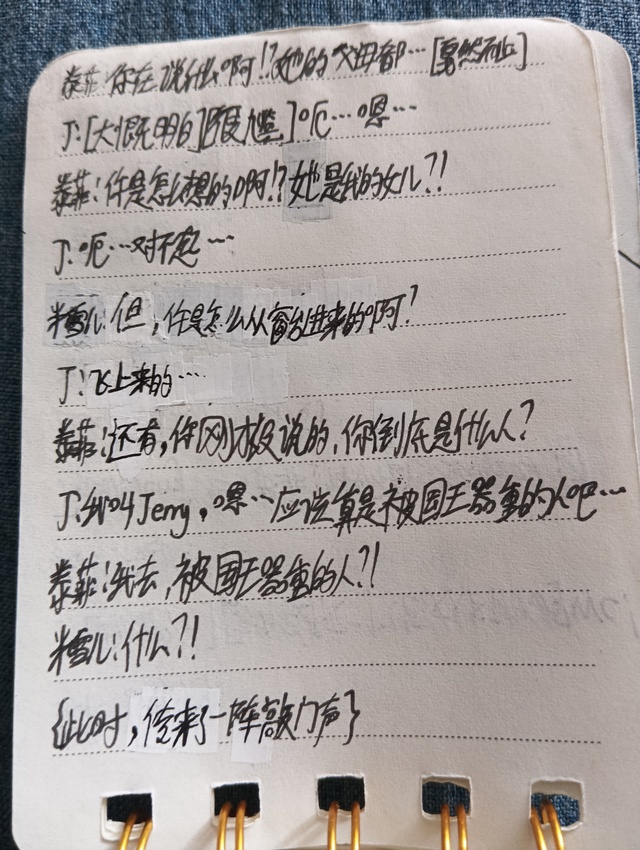 泰菲:你在说什么啊!?她的父母都…[戛然而止]
J:[大概明白][尴尬]呃…嗯…
泰菲:你是怎么想的啊!?她是我的女儿?!
J:呃…对不起…
米雪儿:但,你是怎么从窗台进来的啊?
J:飞上来的…
泰菲:还有,你刚才没说的,你到底是什么人?
J:Jerry,嗯…应该算是被国王器重的人吧…
泰菲:我去,被国王器重的人?!
米雪儿:什么?!
{此时,传来了一阵敲门声}